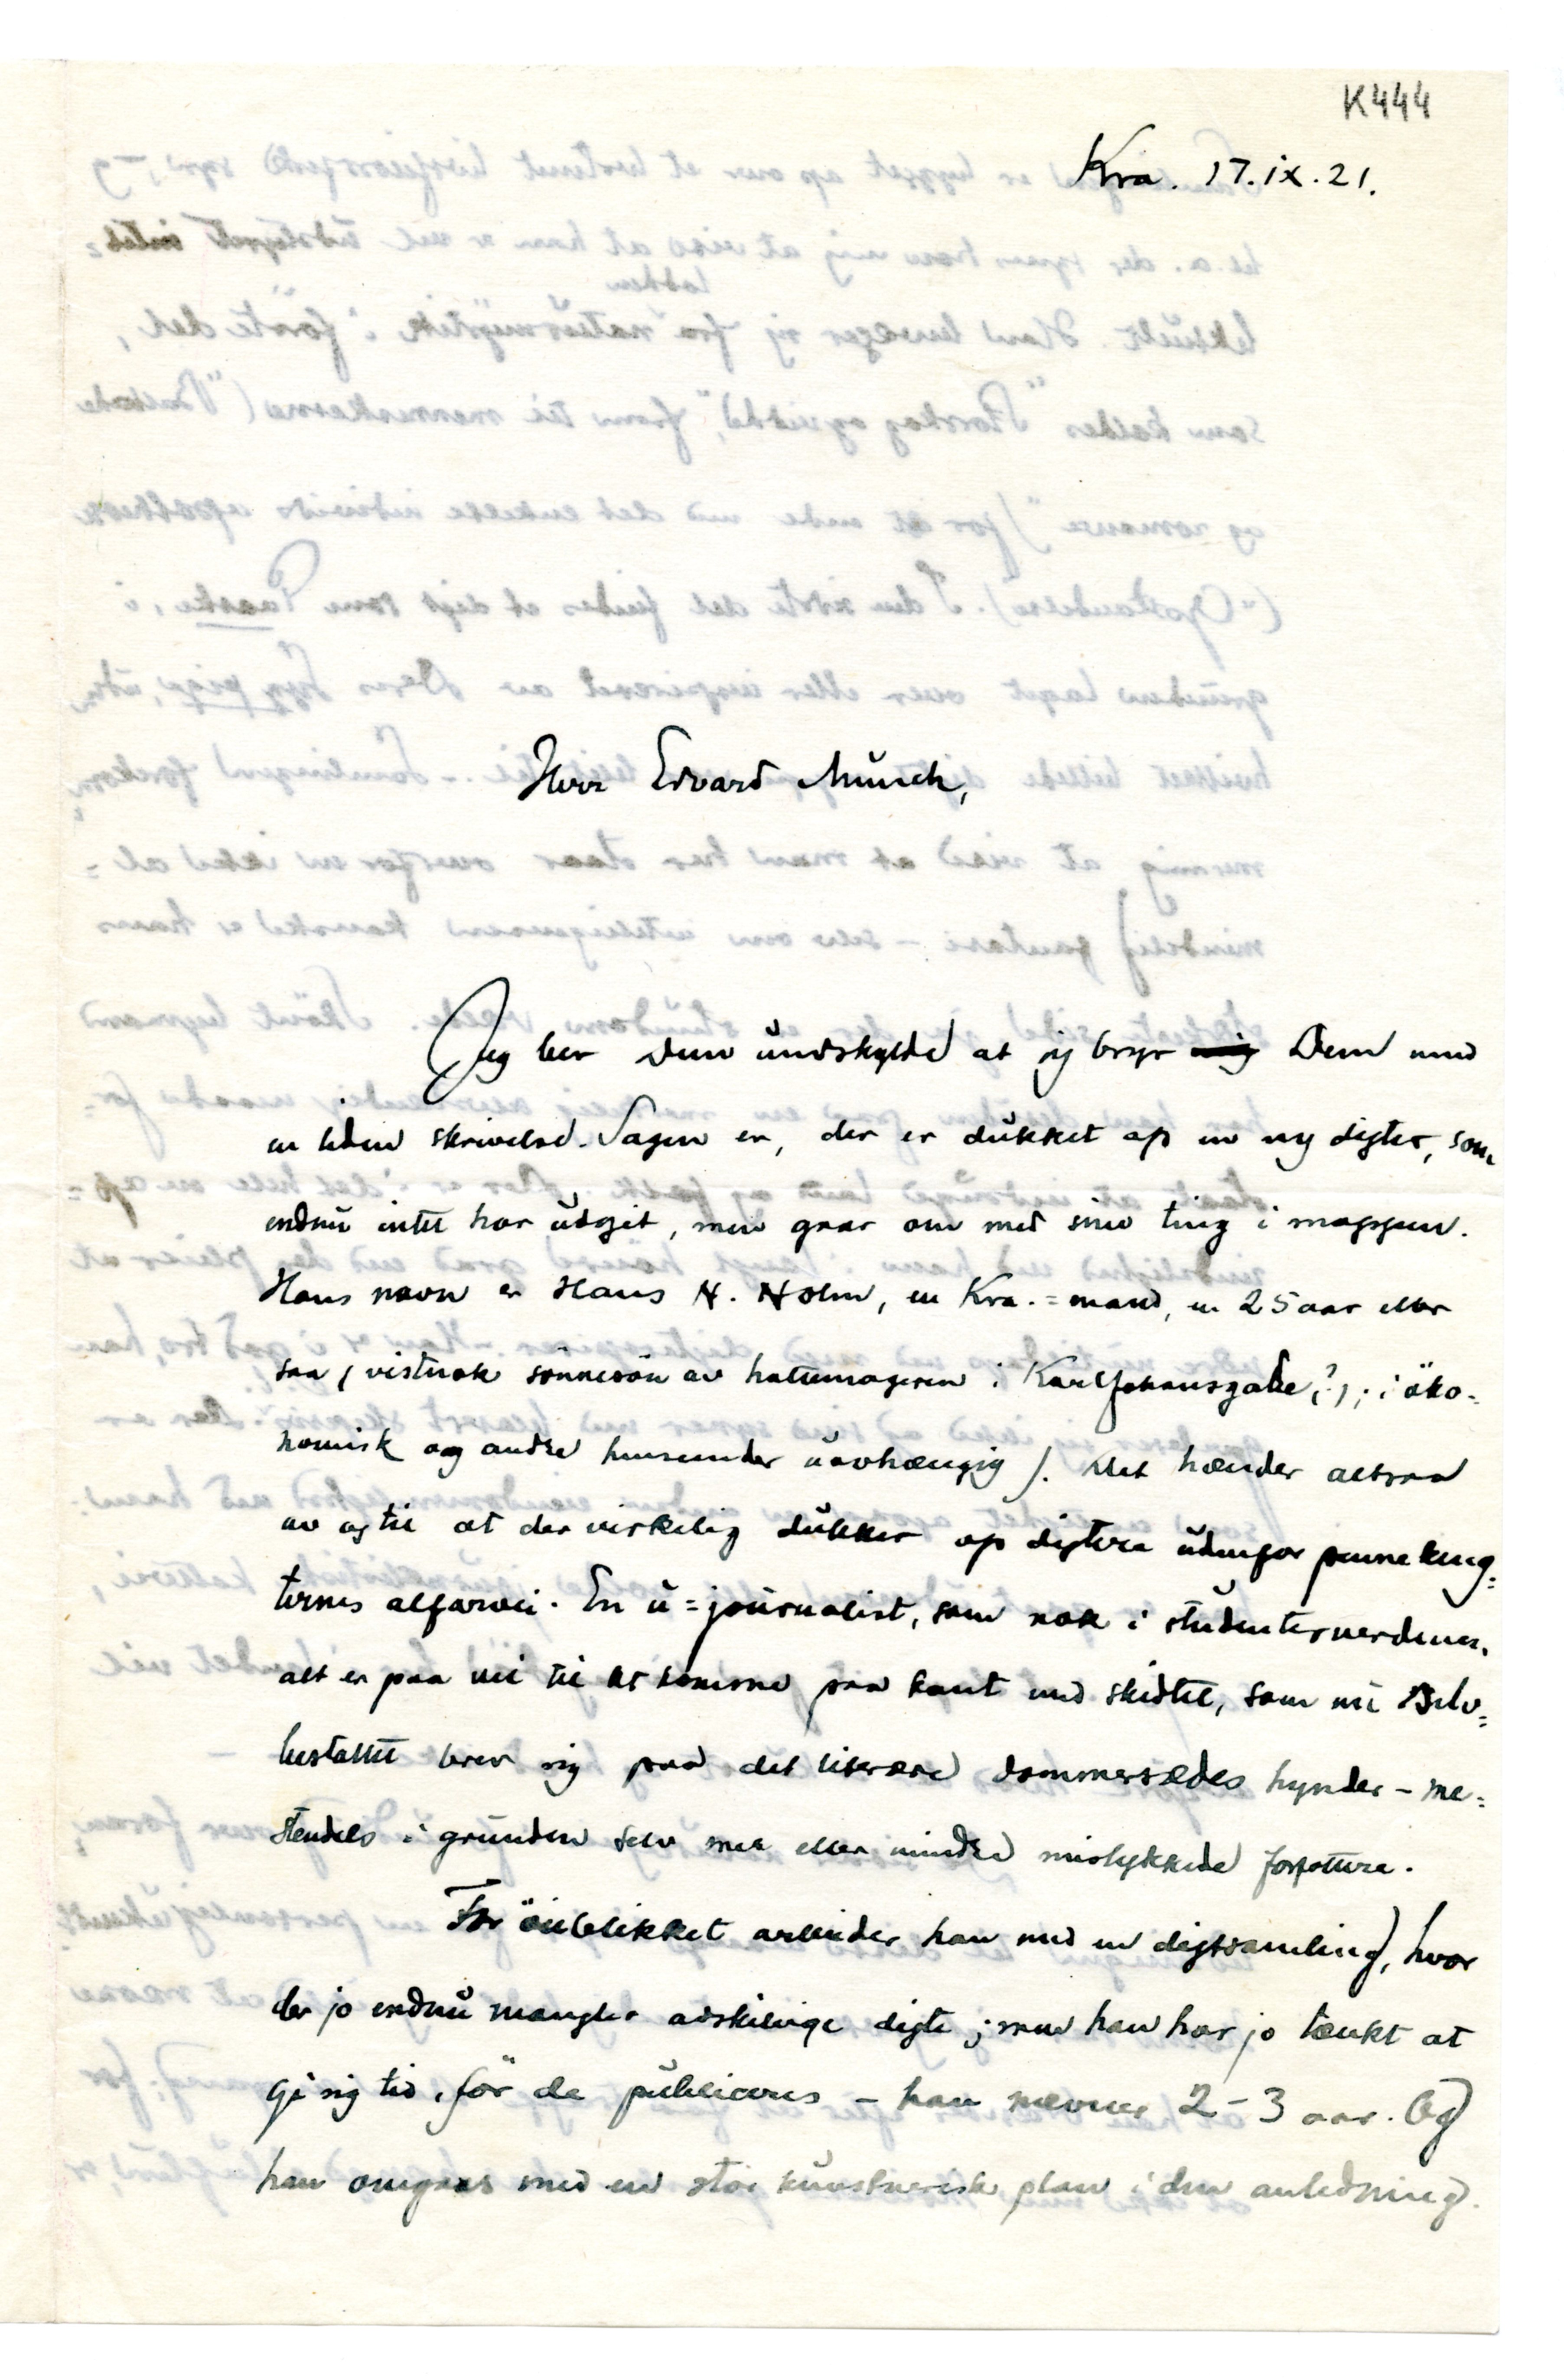 K444
Kra. 17.ix.21.
Herr Edvard Munch,
Jeg ber Dem undskylde at jeg bryr mig Dem med
en liden skrivelse. Sagen er, der er dukket op en ny digter, som
endnu intet har udgit, men gaar om med sine ting i mappen.
Hans navn er Hans H. Holm, en Kra.=mand, en 25 aar eller
saa (vistnok sönnesön av hattemageren i Karl Johansgade(?); i öko-
nomisk og andre henseender uavhængig). Det hænder altsaa
av og til at der virkelig dukker op digtere udenfor pennekneg=
ternes alfarvei. En u=journalist, som nok i studenterverdenen
alt er paa vei til at komme paa kant med skidtet, som nu selv=
bestaltet brer sig paa det literære dommersædes hynder – me=
stendels i grunden selv mer eller mindre mislykkede forfattere.
For öieblikket arbeider han med en digtsamling, hvor
der jo endnu mangler adskillige digte; men han har jo tænkt at
gi sig tid, för de publiceres – han nævner 2–3 aar. Og
han omgaas med en stor kunstnerisk plan i den anledning.